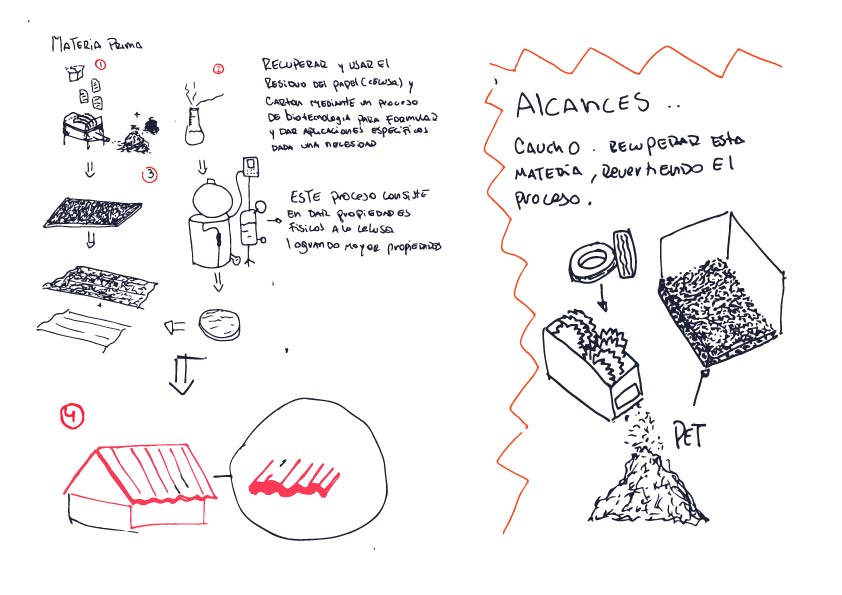 MATERIA PRIMA
1
2
RECUPERAR Y USAR EL
RESIDUO DEL PAPEL (CELUSA) Y
CARTON MEDIANTE UN PROCESO
DE BIOTECNOLOGIA PARA FORMULAR
Y DAR APLICACIONES ESPECIFICOS
DADA UNA NECESIDAD
3
ESTE PROCESO CONSISTE
EN DAR PROPIEDADES
FISICOS A LA CELUSA
LOGRANDO MAYOR PROPIEDADES
4
ALCANCES ..
CAUCHO . RECUPERAR ESTA
MATERIA, REVERTIENDO EL
PROCESO.
PET